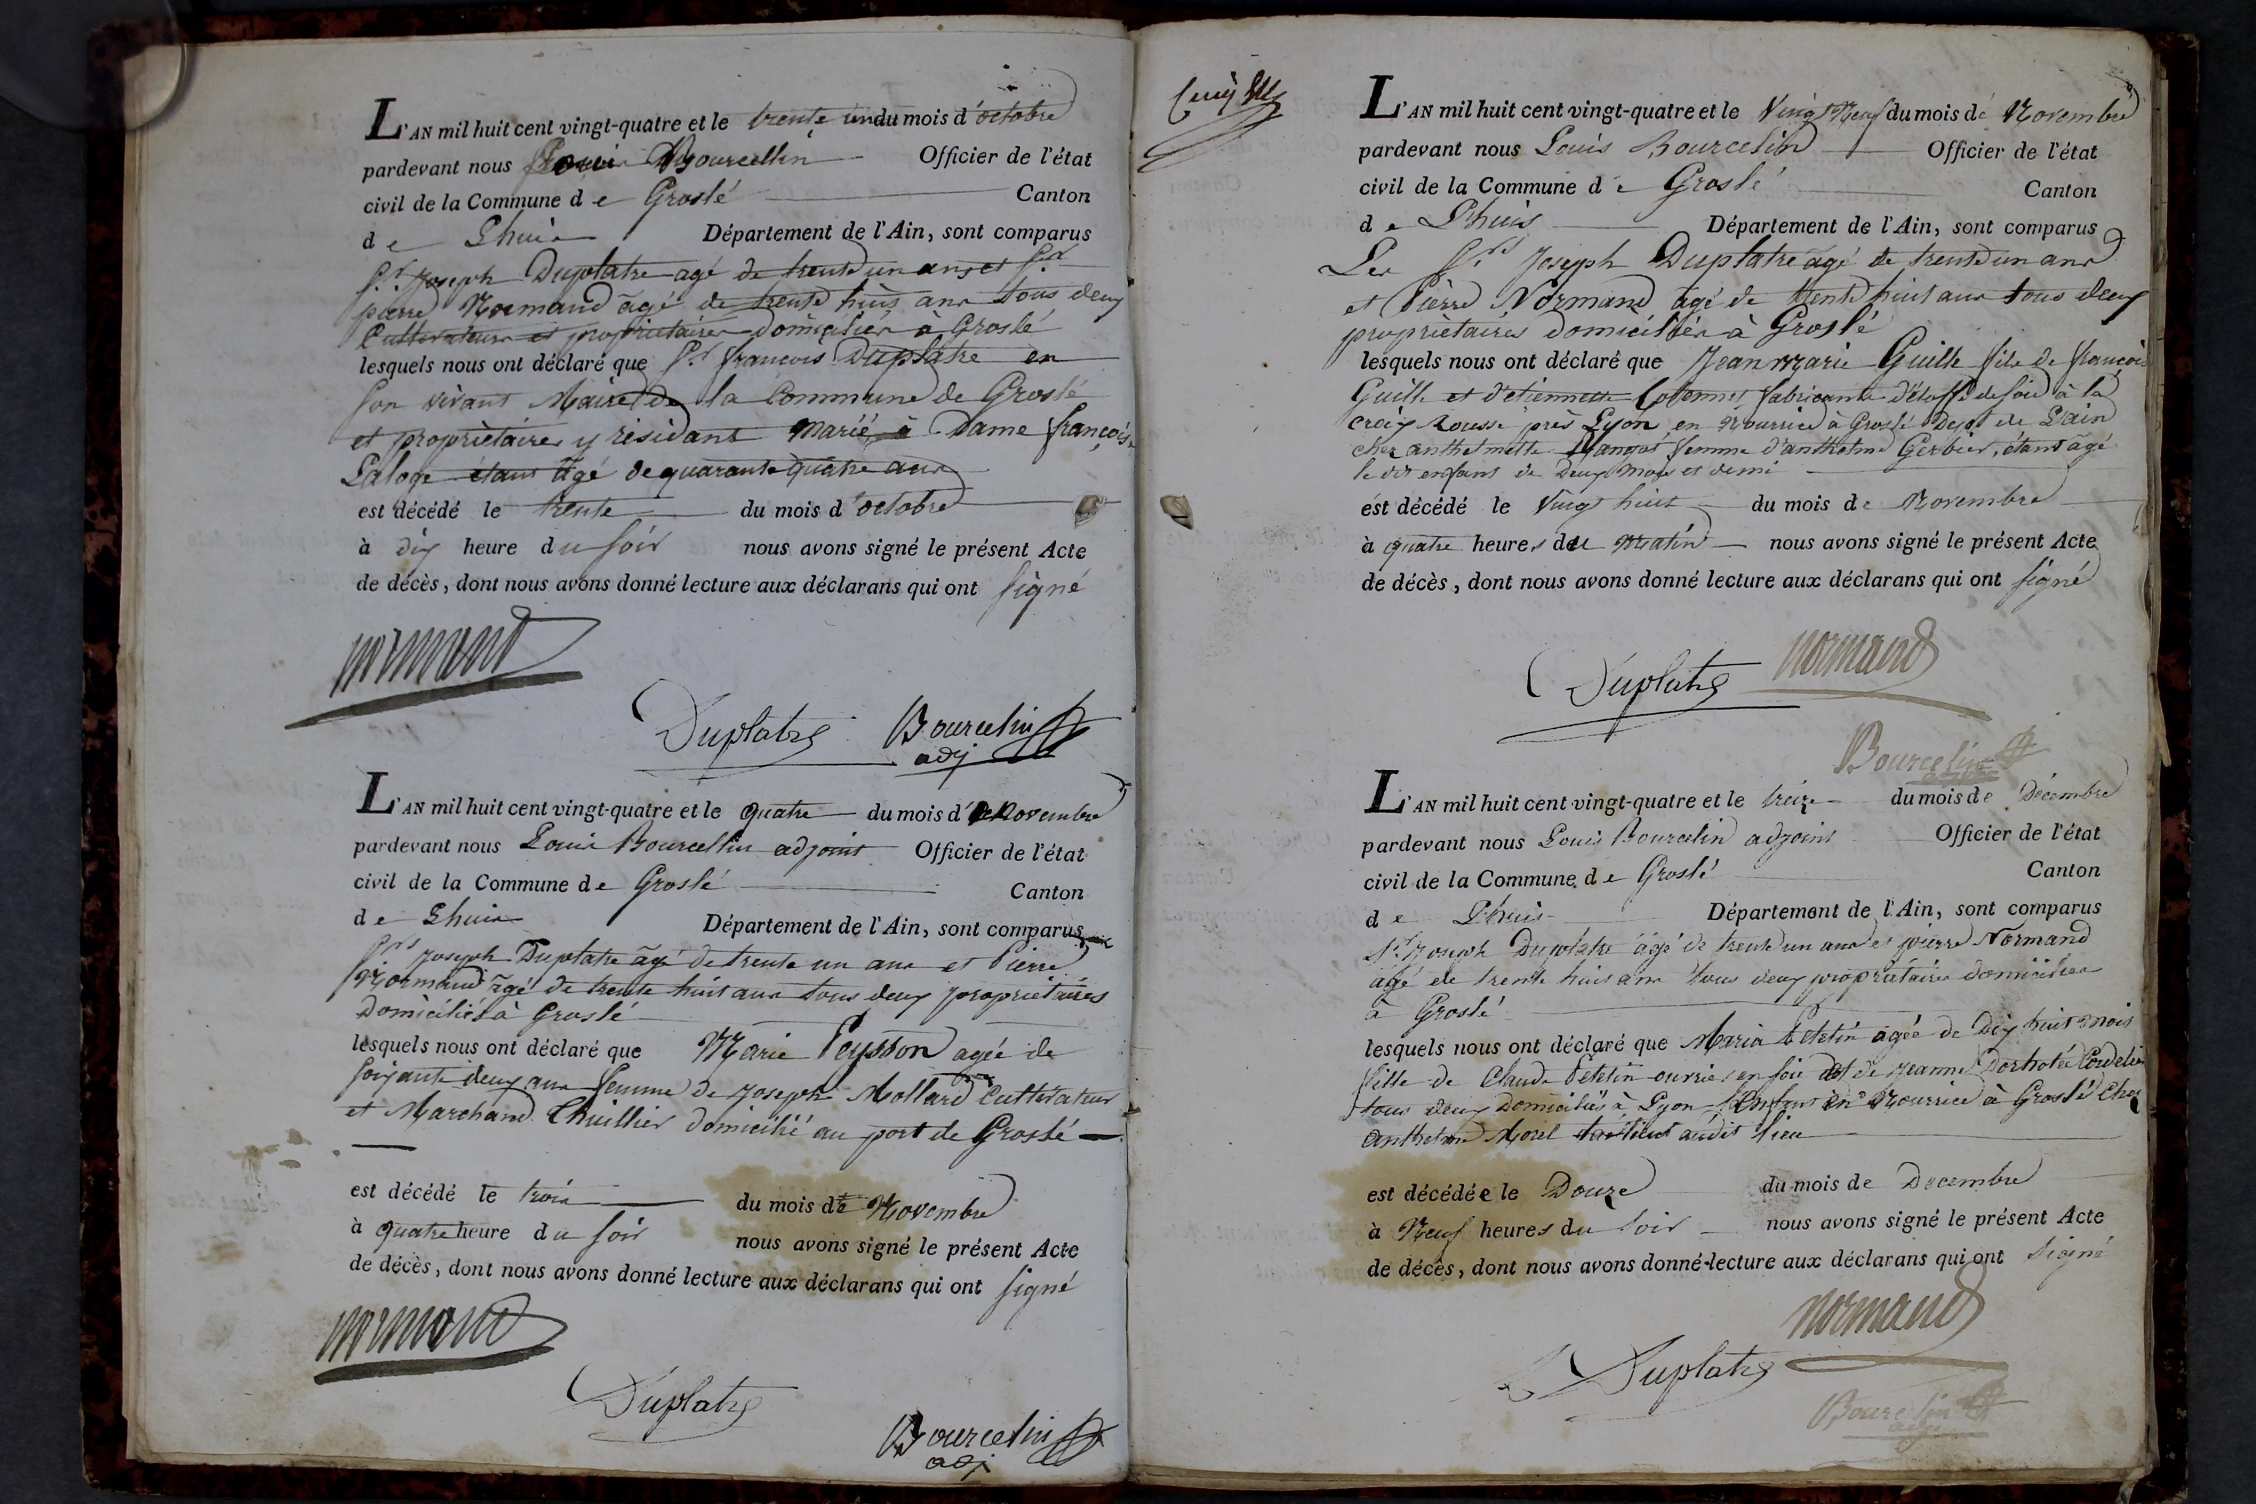 L'AN mil huit cent vingt-quatre et le trente un du mois d'octobre
pardevant nous Louis Bourcellin Officier de l'état
civil de la Commune de Groslé Canton
de Lhuis Département de l'Ain, sont comparus
Sr. Joseph Duplatre agé de trente un ans et Sr
pierre Normand agé de trente huit ans tous deux
Cultivateurs et propriétaires domiciliés à Groslé
lesquels nous ont déclaré que Sr francois Duplatre en
son vivant Maire de la Commune de Groslé
et propriétaire y résidant marié à Dame françoise
Laloge étant agé de quarante quatre ans
est décédé le trente du mois d'octobre
à dix heure du soir nous avons signé le présent Acte
de décès, dont nous avons donné lecture aux déclarans qui ont signé
normand
Duplatre Bourcelin
adj
L'AN mil huit cent vingt-quatre et le quatre du mois de Novembre
pardevant nous Louis Bourcellin adjoint Officier de l'état
civil de la Commune de Groslé Canton
de Lhuis Département de l'Ain, sont comparus
Srs Joseph Duplatre agé de trente un ans et Pierre
Normand agé de trente huit ans tous deux propriétaires
Domiciliés à Groslé
lesquels nous ont déclaré que Marie Peysson agée de
soixante deux ans femme de Joseph Mollard Cultivateur
et Marchand Thuillier domicilié au port de Groslé
est décédé le trois du mois de Novembre
à quatre heure du soir nous avons signé le présent Acte
de décès, dont nous avons donné lecture aux déclarans qui ont signé
normand
Duplatre
Bourcelin
adj
L'AN mil huit cent vingt-quatre et le Vingt Neuf du mois de Novembre
pardevant nous Louis Bourcelin Officier de l'état
civil de la Commune de Groslé Canton
de Lhuis Département de l'Ain, sont comparus
Les Srs Joseph Duplatre agé de trente un ans
et Pierre Normand agé de trente huit ans tous deux
propriètaires domiciliés à Groslé
lesquels nous ont déclaré que Jean Marie Guille fils de françois
Guille et d'etiennette fabricants d'étoffe de soie à la
croix Rousse près Lyon en Nourrice à Groslé Dept de L'ain
chez anthelmette femme d'anthelme Gerbier, étant agé
le dit enfant de Deux Mois et demi
est décédé le Vingt huit du mois de Novembre
à quatre heures du Matin nous avons signé le présent Acte
de décès, dont nous avons donné lecture aux déclarans qui ont signé
Duplatre normand
Bourcelin
L'AN mil huit cent vingt-quatre et le treize du mois de Décembre
pardevant nous Louis Bourcelin adjoint Officier de l'état
civil de la Commune de Groslé Canton
de Lhuis Département de l'Ain, sont comparus
Sr. Joseph Duplatre agé de trente un ans et pierre Normand
agé de trente huit ans tous deux propriétaires domiciliés
à Groslé
lesquels nous ont déclaré que Maria Petetin agée de Dix huit mois
fille de Claude Petetin ouvrier en soie et de Jeanne
tous deux Domiciliés à Lyon Enfant en Nourrice à Groslé chez
Anthelme Morel audit lieu
est décédée le Douze du mois de Decembre
à Neuf heures du soir nous avons signé le présent Acte
de décès, dont nous avons donné lecture aux déclarans qui ont signé
normand
Duplatre
Bourcelin
adj